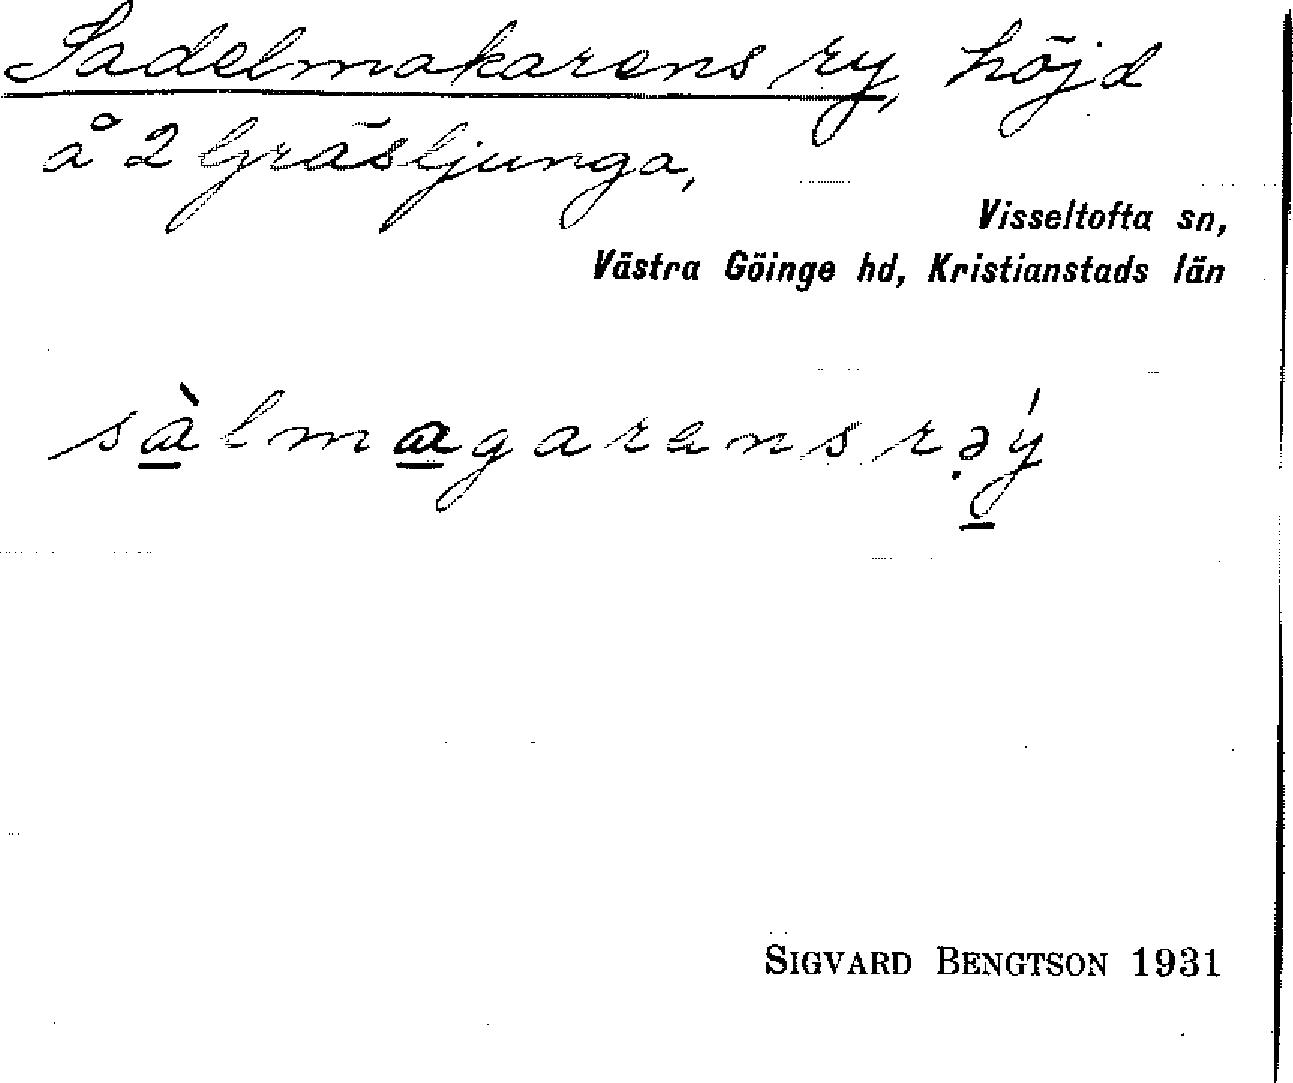 Sadelmakarens ry, höjd
å 2 Gräsljunga,
Visseltofta sn,
Västra Göinge hd, Kristianstads län
sàlmagarensrəý
SIGVARD BENGTSON 1931